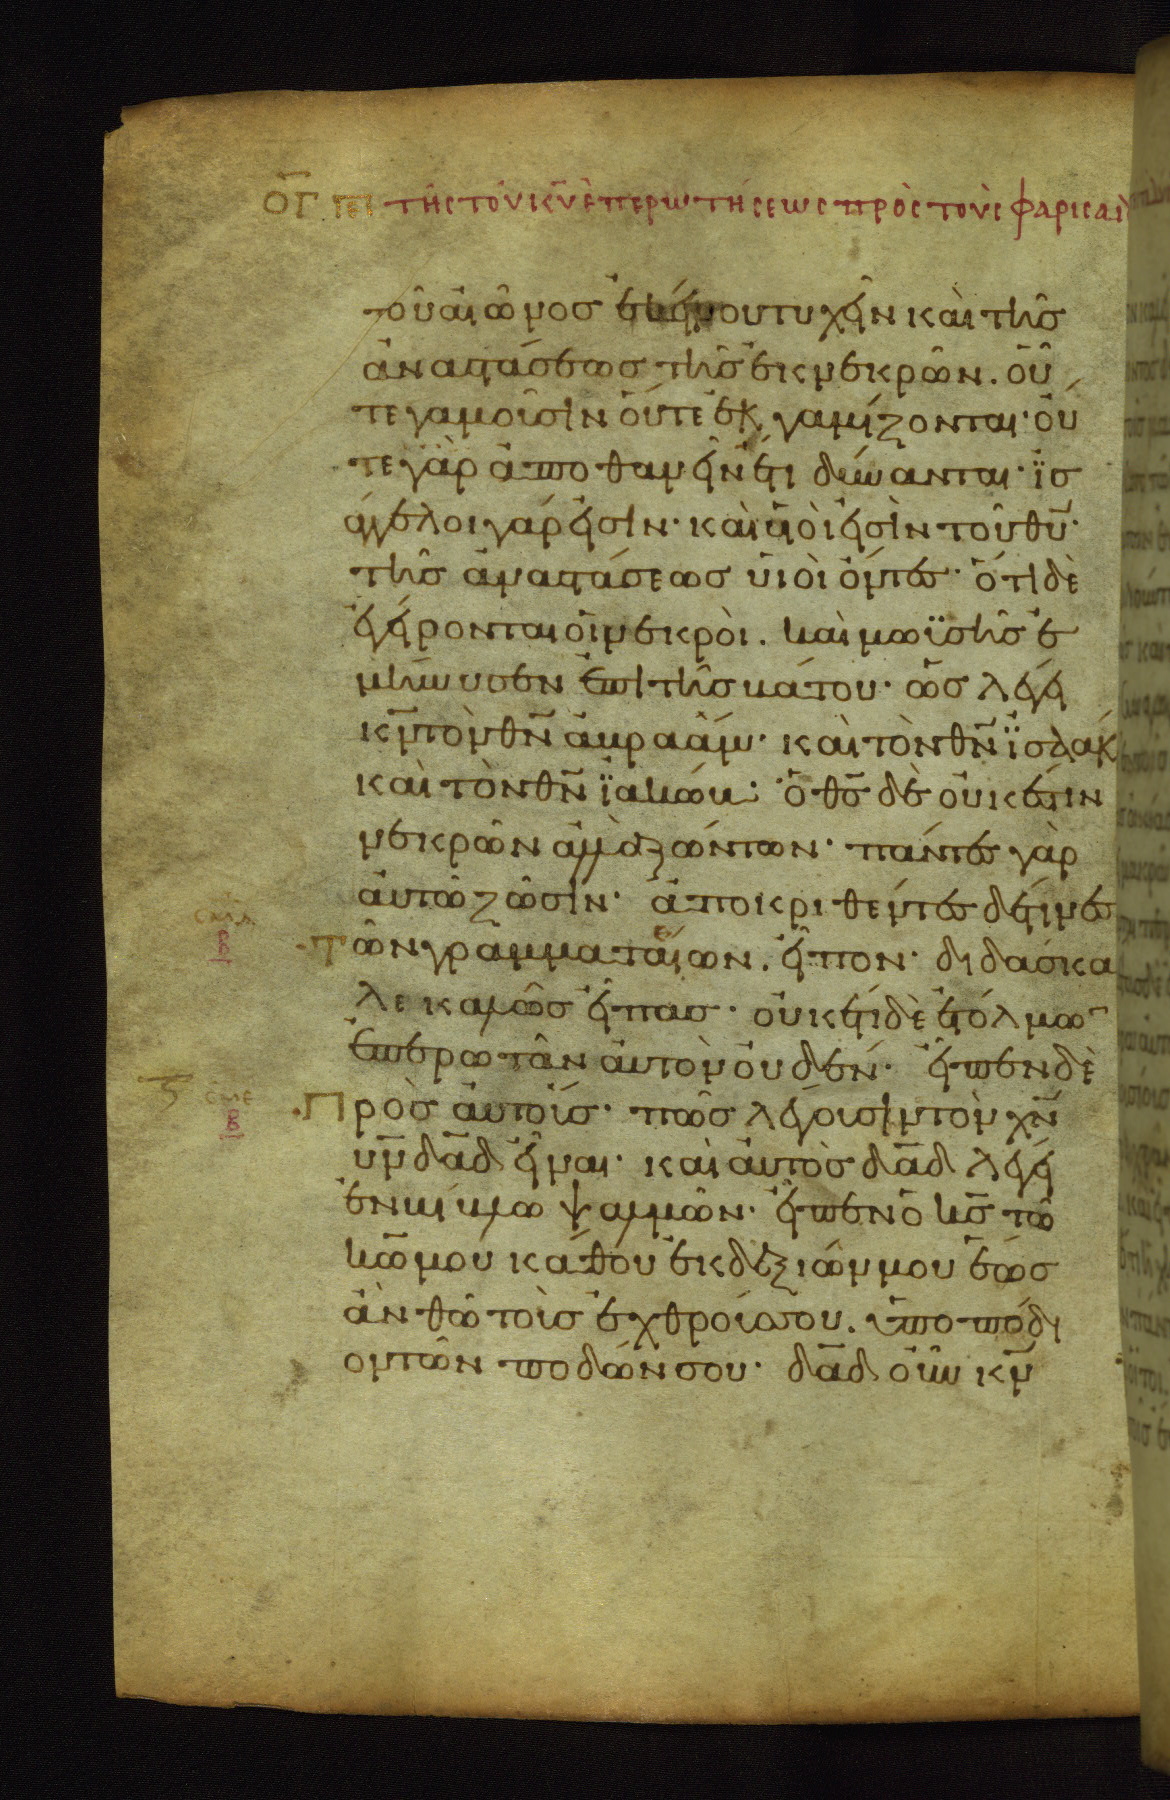 ΟΓ πε τῆς τοῦ κυ ἐπερωτήσεως πρὸς τοὺς φαρισαι
τοῦ αἰῶνος ἐκείνου τυχεῖν καὶ τῆς
ἀναστάσεως τῆς ἐκ νεκρῶν. οὔ
τε γαμοῦσιν οὔτε ἐκγαμίζονται· οὔ
τε γὰρ ἀποθανεῖν ἔτι δύνανται· ἰσ
άγγελοι γάρ εἰσιν· καὶ υἱοὶ εἰσὶν τοῦ θυ·
τῆς ἀναστάσεως υἱοὶ ὄντες· ὅτι δὲ
ἐγείρονται οἱ νεκροὶ. καὶ μωϋσῆς ἐ
μήνυσεν ἐπὶ τῆς βάτου· ὡς λέγει
κν τὸν θν ἀβραὰμ· καὶ τὸν θν ἰσαὰκ
καὶ τὸν θν ἰακώβ· ὁ θς δὲ οὐκ ἔστιν
νεκρῶν ἀλλὰ ζώντων· πάντες γὰρ
αὐτῶ ζῶσιν· ἀποκριθέντες δέ τινες
τῶν γραμματαίων. εἶπον· διδάσκα
λε καλῶς εἶπας· οὐκέτι δὲ ἐτόλμω
ἐπερωτᾶν αὐτὸν οὐδέν· εἶπεν δὲ
Πρὸς αὐτούς· πῶς λέγουσιν τὸν χν
υν δαδ εἶναι· καὶ αὐτὸς δαδ λέγει
ἐν βίβλω ψαλμῶν· εἶπεν ὁ κς τῶ
κω μου κάθου ἐκ δεξιῶν μου ἕως
ἂν θῶ τοὺς ἐχθρούς σου. ὑποπόδι
ον τῶν ποδῶν σου· δαδ οὖν κν